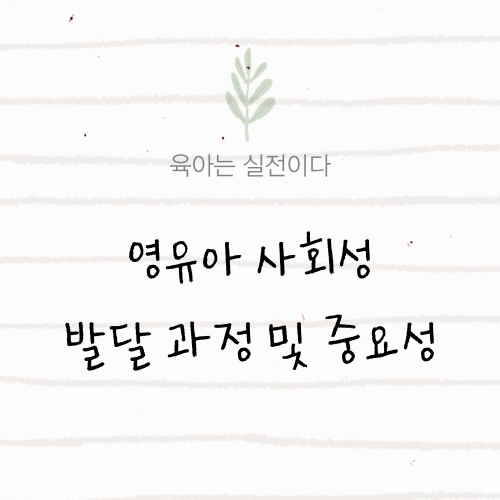 육아는 실전이다
영유아 사회성
발달 과정 및 중요성